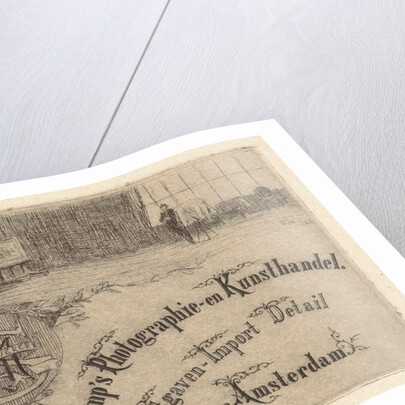 mp's Photographie-en Kunsthandel.
gaven-Import Detail
Amsterdam.
H